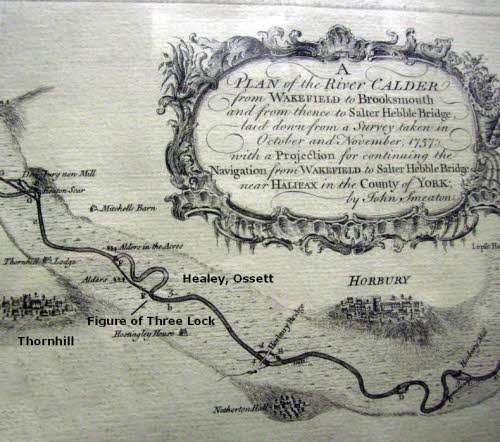 A
PLAN of the River CALDER
from WAKEFIELD to Brooksmouth
and from thence to Salter Hebble Bridge
laid down from a Survey taken in
October and November, 1757.
with a Projection for continuing the
Navigation from WAKEFIELD to Salter Hebble Bridge
near HALIFAX in the County of YORK;
by John Smeaton.
Dewsbury new Mill
Mitchells Barn
Alders in the Acres
Thornhill Lodge
Alders
Healey, Ossett
HORBURY
Figure of Three Lock
Thornhill
Hostingley House
Horbury Bridge
Netherton Hall
Horbury Mill